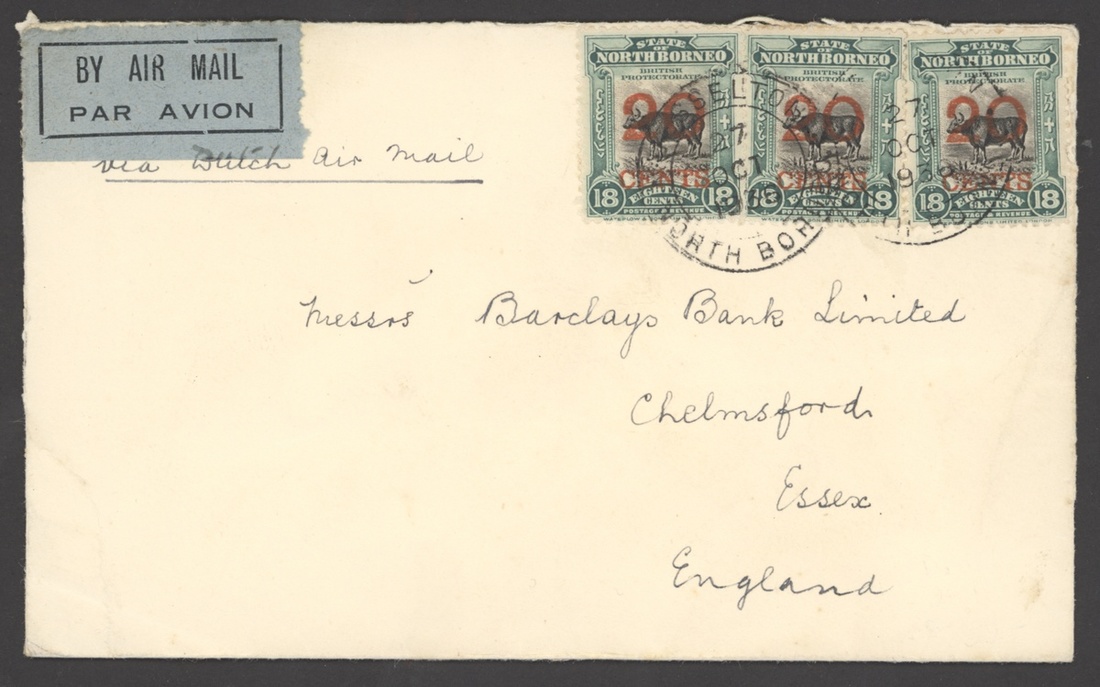 BY AIR MAIL
PAR AVION
via Dutch Air Mail
STATE OF NORTH BORNEO
BRITISH PROTECTORATE
20 CENTS
18 EIGHTEEN CENTS 18
POSTAGE & REVENUE
STATE OF NORTH BORNEO
BRITISH PROTECTORATE
20 CENTS
18 EIGHTEEN CENTS 18
POSTAGE & REVENUE
STATE OF NORTH BORNEO
BRITISH PROTECTORATE
20 CENTS
18 EIGHTEEN CENTS 18
POSTAGE & REVENUE
SSELTO
27
OCT
NORTH BOR
27
OCT
Messrs Barclays Bank Limited
Chelmsford
Essex
England